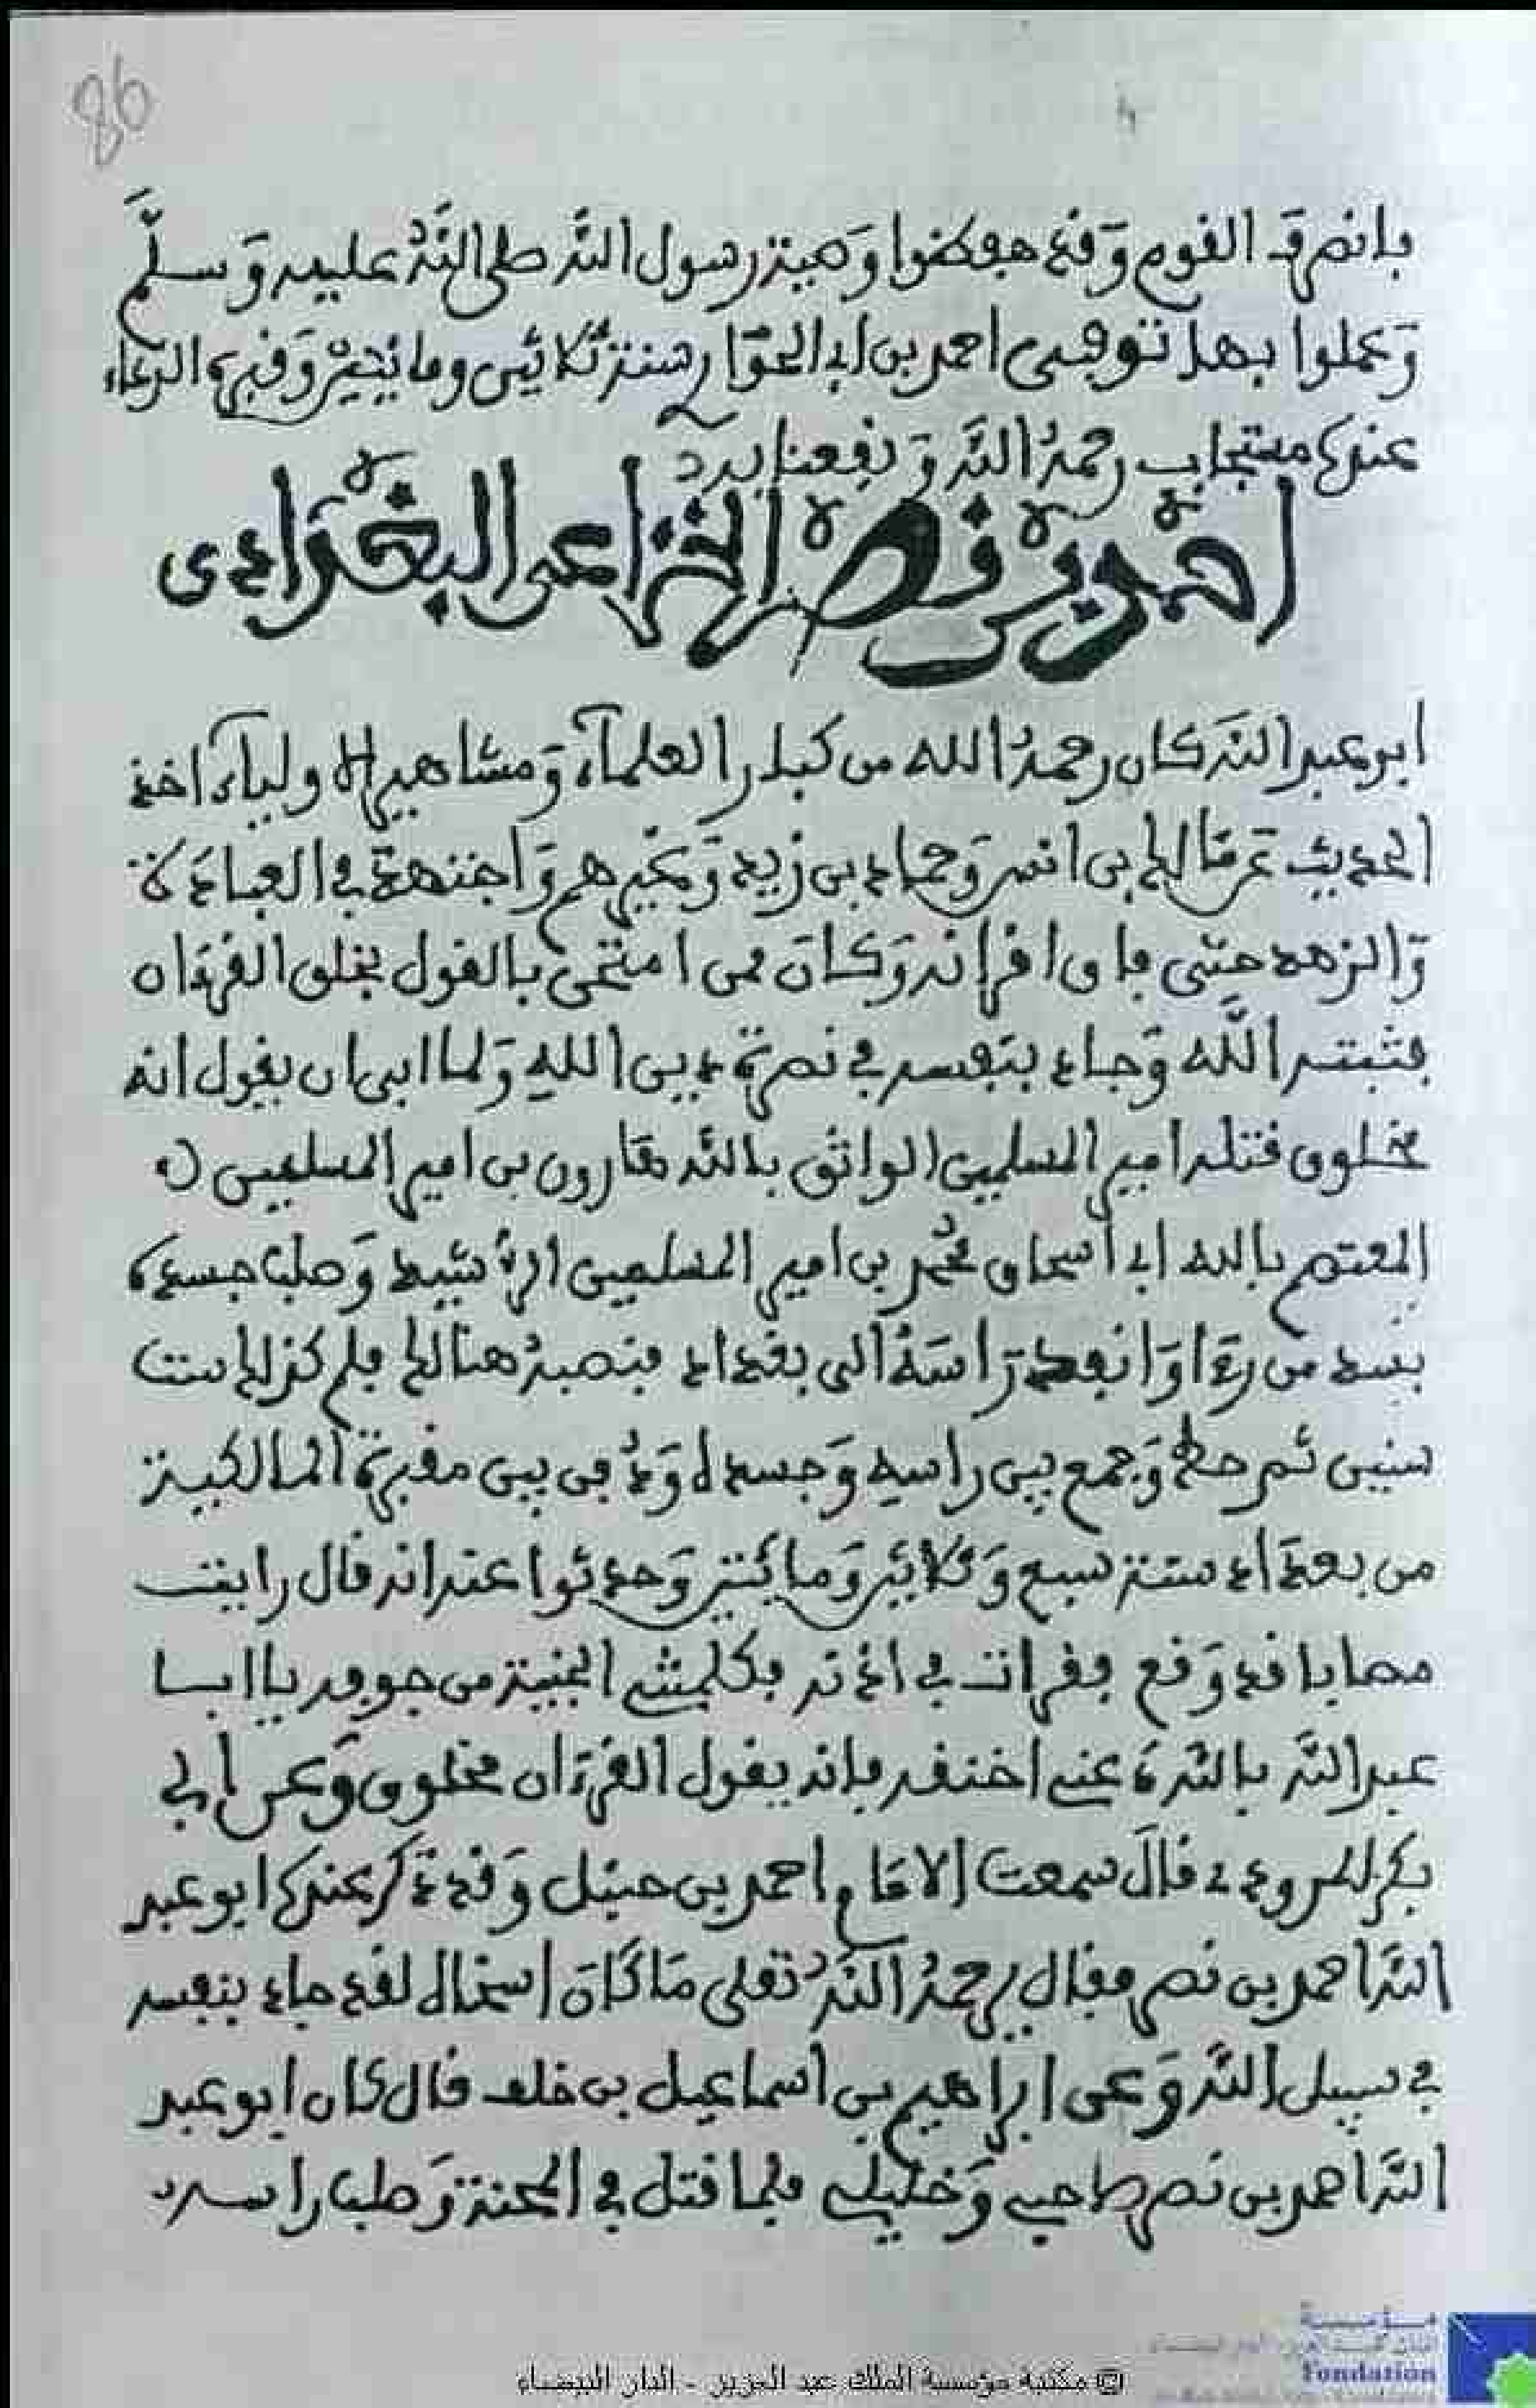 86
فانصرف القوم وقد حفظوا وصية رسول الله صلى الله عليه وسلم
وعملوا بها توفي احمد بن ابي الحوار سنة ثلاثين ومائتين وقبره الدعاء
عنده مستجاب رحمه الله ونفعنا به
احمد بن نصر الخزاعي البغدادي
ابو عبد الله كان رحمه الله من كبار العلماء ومشاهير الاولياء اخذ
الحديث عن مالك بن انس وحماد بن زيد وغيرهم واجتهد في العبادة
والزهد حتى فاق اقرانه وكان ممن امتحن بالقول بخلق القرءان
فثبته الله وجاد بنفسه في نصرة دين الله ولما ابى ان يقول انه
مخلوق قتله امير المسلمين الواثق بالله هارون بن امير المسلمين
المعتصم بالله ابي اسحاق محمد بن امير المسلمين الرشيد وصلب جسده
بسر من رءا وانفذ راسه الى بغداد فنصب هنالك فلم كذلك ست
سنين ثم حط وجمع بين راسه وجسده ودفن بين مقبرة المالكية
من بغداد سنة سبع وثلاثين ومائتين وحدثوا عنه انه قال رايت
مصابا قد وقع فقرات في اذنه فكلمتني الجنية من جوفه يا ابا
عبد الله بالله دعني اخنقه فانه يقول القرءان مخلوق وعن ابي
بكر المروذي قال سمعت الامام احمد بن حنبل وقد ذكر عنده ابو عبد
الله احمد بن نصر فقال رحمه الله تعلى ما كان اسخاه لقد جاد بنفسه
في سبيل الله وعن ابراهيم بن اسماعيل بن خلف قال كان ابو عبد
الله احمد بن نصر صاحبي وخليلي فلما قتل في المحنة وصلب راسه
© مكتبة مؤسسة الملك عبد العزيز - الدار البيضاء
مؤسسة
Fondation